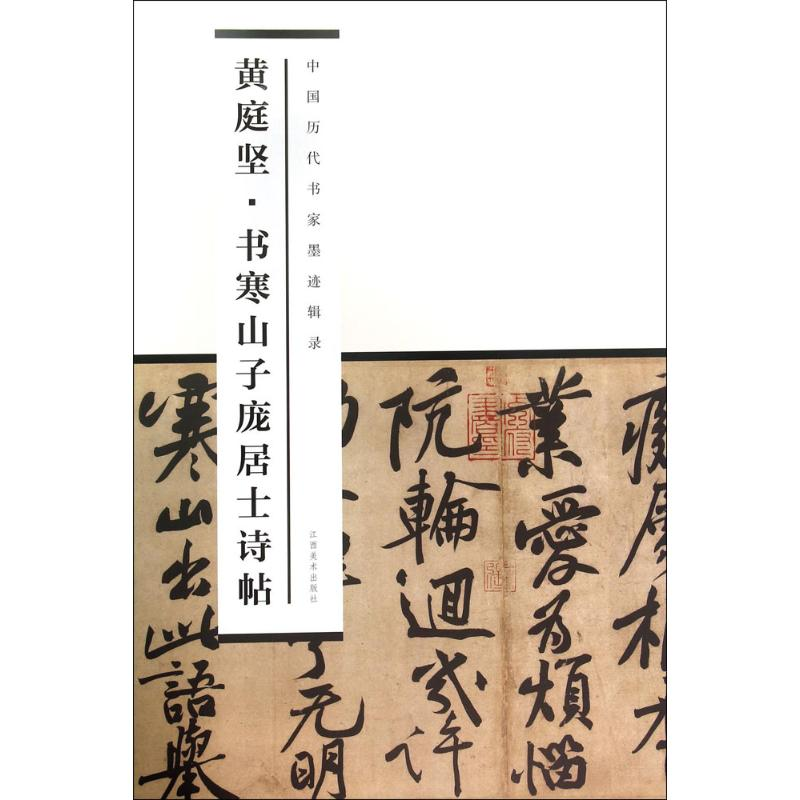 黄庭坚·书寒山子庞居士诗帖
中国历代书家墨迹辑录
江西美术出版社
業愛為煩惱
阬輪迴幾許
了无明
寒山出此語舉